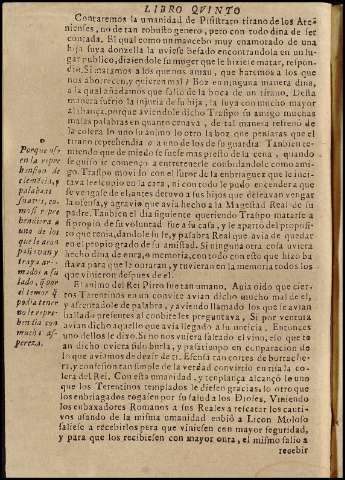 LIBRO QVINTO
Contaremos la umanidad de Pisistrato tirano de los Ate-
nienses, no de tan robusto genero, pero con todo dina de ser
contada. El qual como un mancebo muy enamorado de una
hija suya donzella la uviose besado encontrandola en un lu-
gar publico, diziendole su muger que le hiziese matar, respon-
dio. Si matamos a los que nos aman, que haremos a los que
nos aborrecen, y quieren mal? Boz en ninguna manera dina,
a la qual añadamos que salio de la boca de un tirano. Desta
manera sufrio la injuria de su hija, la suya con mucho mayor
alabança, porque aviendole dicho Traspo su amigo muchas
malas palabras en quanto cenava, de tal manera refreno de
la colera lo uno lo animo lo otro la boz, que pensaras que el
tirano reprehendia a uno de los de su guarda. Tanbien te-
miendo que de miedo se fuese mas presto de la cena, quando
se quiso ir començo a entretenerle conbidandole como ami-
go. Traspo movido con el furor de la enbriaguez que le inci-
tava le escopio en la cara, ni con todo le pudo encender a que
se vengase
la ofensa, y agravio que avia hecho a la Magestad Real de su
padre. Tanbien el dia siguiente queriendo Traspo matarse a
si propio de su voluntad fue a su casa, y le aparto del proposi-
to que tenia, dandole su fe, y palabra Real que avia de quedar
en el propio grado de su amistad. Si ninguna otra cosa uviera
hecho dina de onra, o memoria, con todo con esto que hizo ba-
stava para que le onraran, y tuvieran en la memoria todos los
que vinieron despues de el.
El animo del Rei Pirro fue tan umano. Avia oido que cier-
tos Tarentinos en un convite avian dicho mucho mal de el,
y afrentadole de palabra, y aviendo llamado los que se avian
hallado presentes al conbite les preguntava, Si por ventura
avian dicho aquello que avia llegado a su noticia. Entonces
uno dellos le dixo. Si no nos uviera faltado el vino, eso que te
an dicho uviera sido burla, y pasatienpo en conparacion de
lo que aviamos de dezir de ti. Escusa tan cortes de borrache-
ra, y confesion tan simple de la verdad convirtio en risa la co-
lera del Rei. Con esta umanidad, y tenplança alcançò lo uno
que los Tarentinos templados le diesen gracias, lo otro que
los enbriagados rogasen por su salud a los Dioses. Viniendo
los enbaxadores Romanos a sus Reales a rescatar los cauti-
vos usando de la misma umanidad enbiò a Licon Moloso
saliese a recebirlos para que viniesen con mayor seguridad,
y para que los recibiesen con mayor onra, el mismo salio a
recebir
Porque usò
en la repre
hension de
clemencia,
palabras
suaves, co-
medi
uno de los
que le acon
pañavan y
traya ar-
mados a su
lado, q por
el temor q
podia tener
no le repre-
hendia con
mucha as-
pereza.